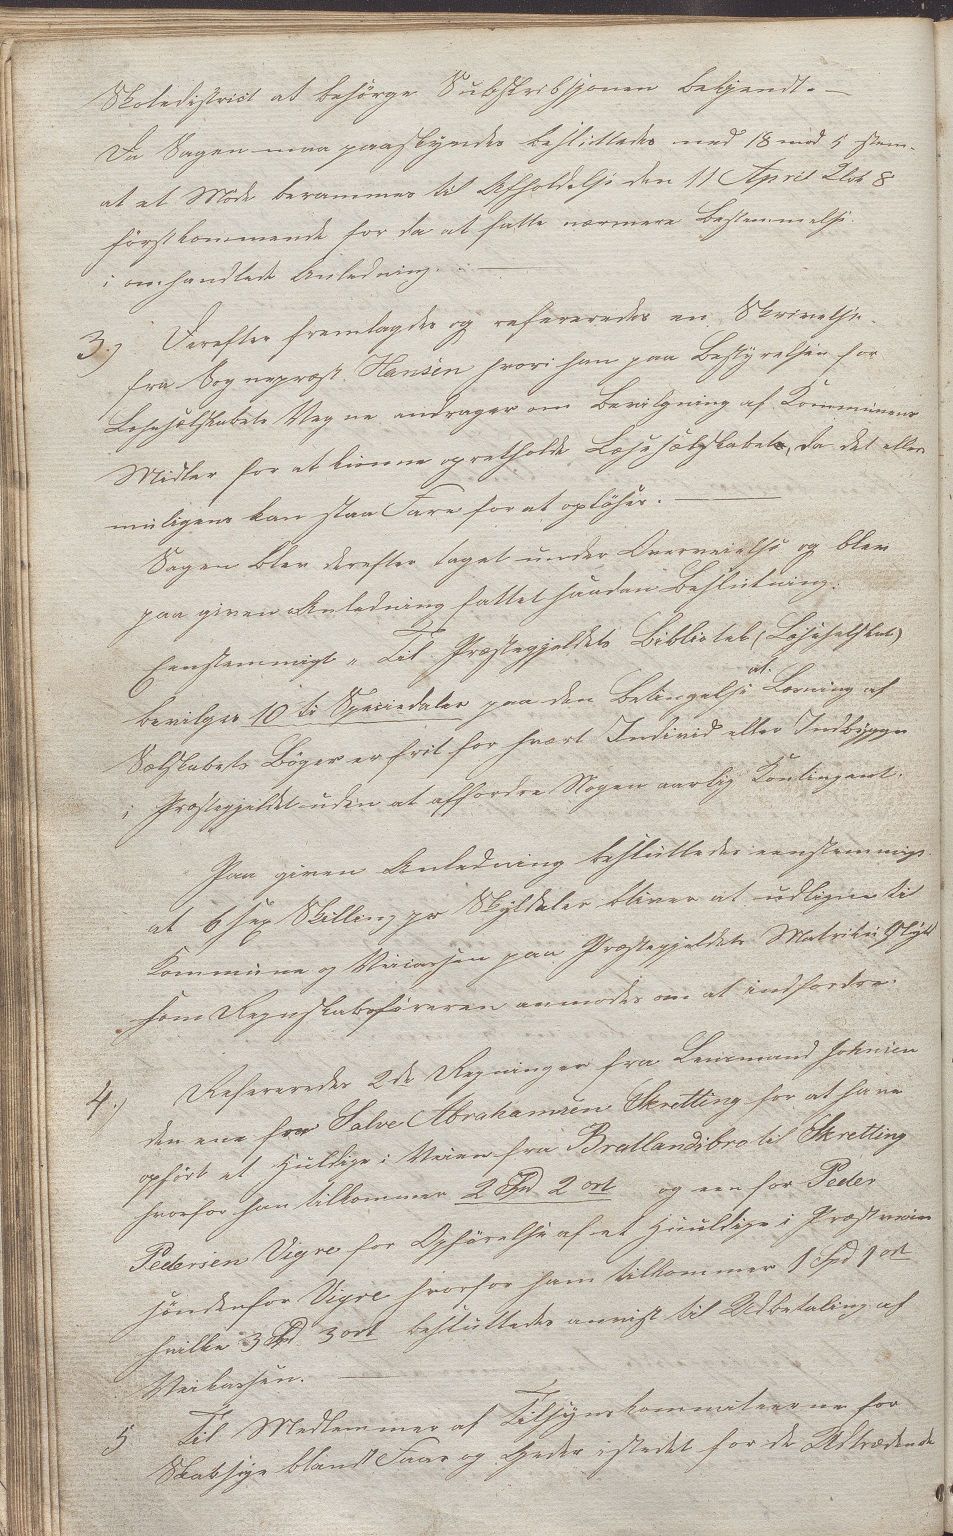 Skoledistrict at besörge Subskribsjonen bekjendt. —
Da Sagen maa paaskyndes besluttedes med 18 mod 5 stem.
at et Möde berammes til Afholdelse den 11 April Klok 8
förstkommende for da at fatte nærmere Bestemmelse
i omhandlede Anledning. —
3.) Derefter fremlagdes og refereredes en Skrivelse
fra Sognepræst Hansen hvori han paa Bestyrelsen for
Læseselskabets Vegne andrager om Bevilgning af Kommunens
Midler for at kunne opretholde Læseselskabet, da det ellers
muligens kan staa Fare for at oplöses. —
Sagen blev derefter taget under Overveielse og blev
paa given Anledning fattet saadan Beslutning:
Eenstemmigt „ Til Præstegjeldets Bibliotek (Læseselskab)
bevilges 10 ti Speciedaler paa den Betingelse at Læsning af
Selskabets Böger er frit for hvert Individ eller Indbygger
i Præstegjeldet uden at affordre Nogen aarlig Kontingent.
Paa given Anledning besluttedes eenstemmigt
at 6 sex Skilling pr Skylddaler bliver at udligne til
Kommune og Veicassen paa Præstegjeldets Matrikul Skyld
som Regnskabsföreren anmodes om at indfordre.
4.) Refereredes 2de Regninger fra Lensmand Johnsen
den ene fra Salve Abrahamsen Skretting for at have
opfört et Huldige i Veien fra Bratlandsbro til Skretting
hvorfor han tilkommer 2 Spd 2 ort og een for Peder
Pedersen Vigre for Opförelse af et Huuldige i Præstveien
söndenfor Vigre hvorfor ham tilkommer 1 Spd 1 ort
hvilke 3 Spd 3 ort besluttedes anvist til Udbetaling af
Veikassen. —
5 Til Medlemmer af Tilsynskommiteerne for
Skabsyge blandt Faar og Geder istedet for de Udtrædende